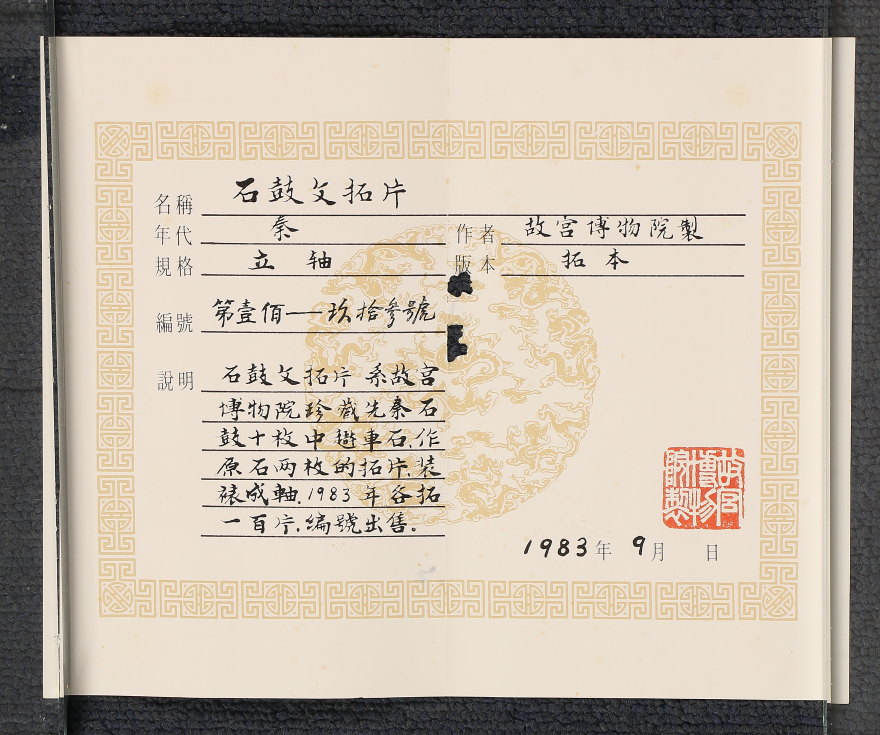 名稱 石鼓文拓片
年代 秦 作者 故宮博物院製
規格 立轴 版本 拓本
編號 第壹佰一玖拾參號
說明 石鼓文拓片系故宮
博物院珍藏先秦石
鼓十枚中避車石、作
原石两枚的拓片.装
裱成軸.1983年各拓
一百片.編號出售.
故宮
博物
院製
1983年 9月 日